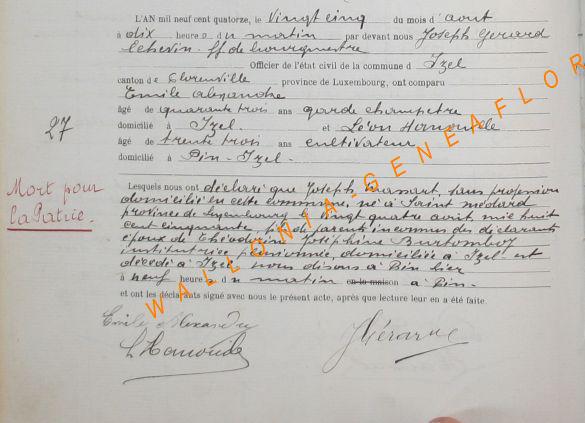 L'AN mil neuf cent quatorze, le vingt cinq du mois d'aout
à dix heures du matin par devant nous Joseph Gérard
Echevin ff de bourgmestre
Officier de l'état civil de la commune d Izel
canton de Florenville province de Luxembourg, ont comparu
Emile Alexandre
âgé de quarante trois ans garde champetre
domicilié à Izel et Léon Hanouille
âgé de trente trois ans cultivateur
domicilié à Pin-Izel
27
Mort pour
la Patrie.
Lesquels nous ont déclaré que Joseph sans profession
domicilié en cette commune, né à Saint médard
province de Luxembourg le vingt quatre avril mil huit
cent cinquante, de parents inconnus des déclarants
époux de Joséphine
institutrice pensionnée, domiciliée à Izel est
décédé à Izel, nous disons à Pin hier
à neuf heures du matin en la maison à Pin.
et ont les déclarants signé avec nous le présent acte, après que lecture leur en a été faite.
Emile Alexandre
JGérard
WALLONIA-GENEAFLOR